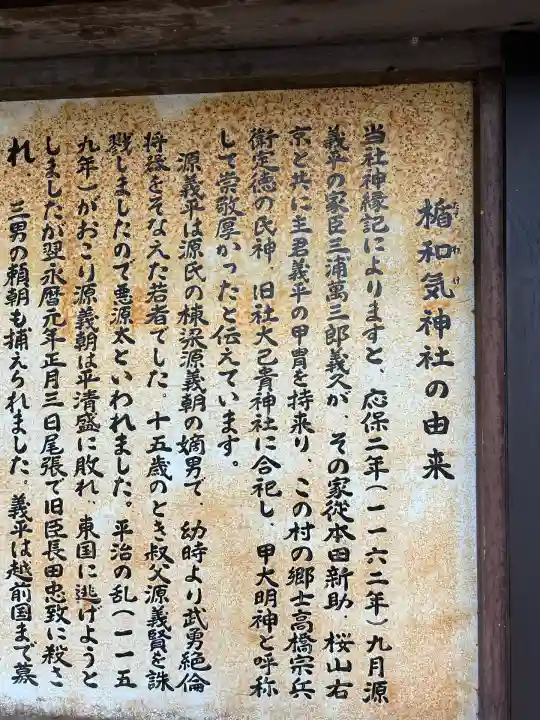 楯和気神社の由来
当社神縁記によりますと、応保二年(一一六二年)九月源
義平の家臣三浦萬三郎義久が、その家從本田新助、桜山右
京と共に主君義平の甲冑を持来り、この村の郷士高橋宗兵
衛定徳の氏神、旧社大己貴神社に合祀し、甲大明神と呼称
して崇敬厚かったと伝えています。
源義平は源氏の棟梁源義朝の嫡男で、幼時より武勇絶倫
将器をそなえた若者でした。十五歳のとき叔父源義賢を誅
戮しましたので悪源太といわれました。平治の乱(一一五
九年)がおこり源義朝は平清盛に敗れ、東国に逃げようと
しましたが翌永暦元年正月三日尾張で旧臣長田忠致に殺さ
れ 三男の頼朝も捕えられました。義平は越前国まで募